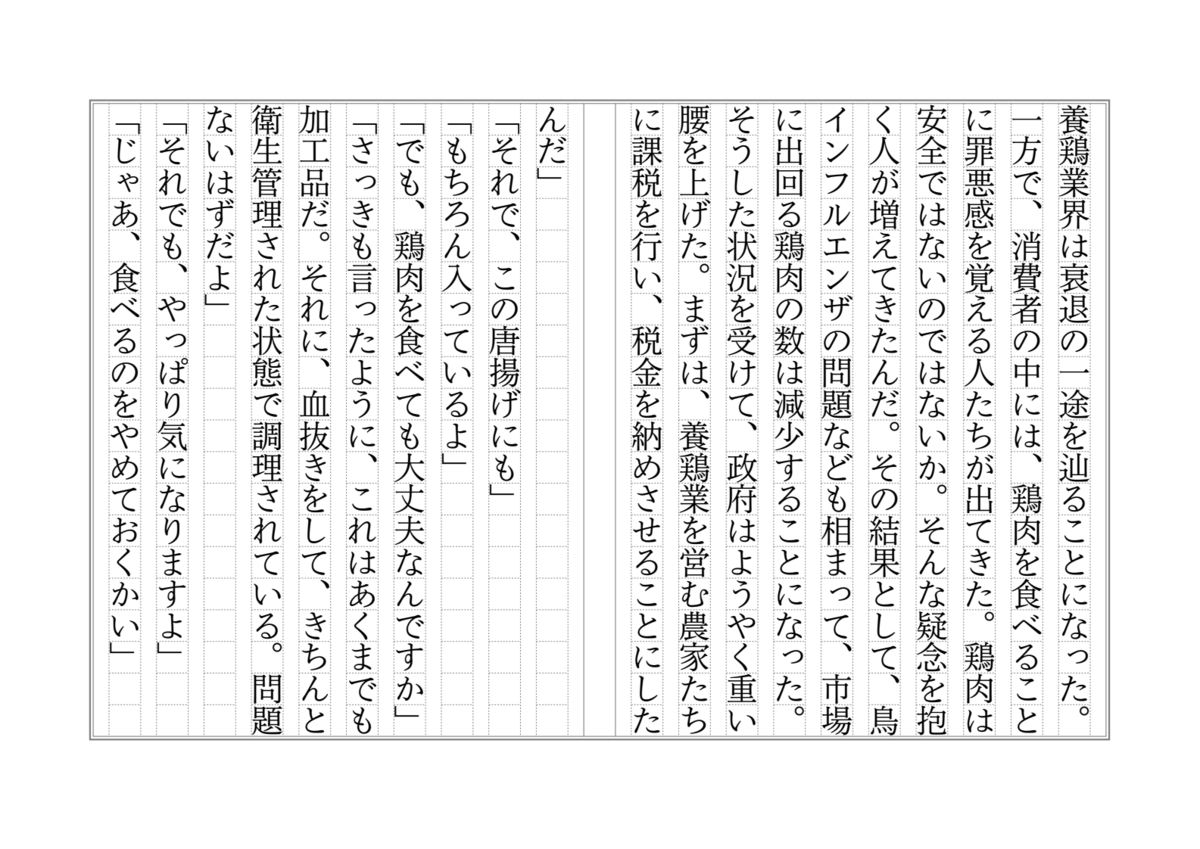 養鶏業界は衰退の一途を辿ることになった。
一方で、消費者の中には、鶏肉を食べること
に罪悪感を覚える人たちが出てきた。鶏肉は
安全ではないのではないか。そんな疑念を抱
く人が増えてきたんだ。その結果として、鳥
インフルエンザの問題なども相まって、市場
に出回る鶏肉の数は減少することになった。
そうした状況を受けて、政府はようやく重い
腰を上げた。まずは、養鶏業を営む農家たち
に課税を行い、税金を納めさせることにした
んだ」
「それで、この唐揚げにも」
「もちろん入っているよ」
「でも、鶏肉を食べても大丈夫なんですか」
「さっきも言ったように、これはあくまでも
加工品だ。それに、血抜きをして、きちんと
衛生管理された状態で調理されている。問題
ないはずだよ」
「それでも、やっぱり気になりますよ」
「じゃあ、食べるのをやめておくかい」